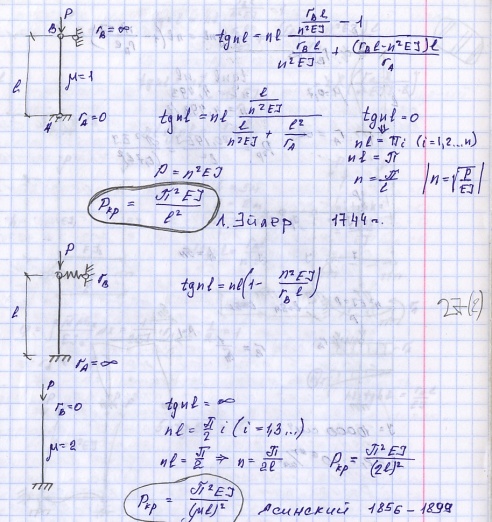 P
B r_B = ∞
l μ = 1
A r_A = 0
tg nl = nl \frac{\frac{r_B l}{n²EJ} - 1}{\frac{r_B l}{n²EJ} + \frac{(r_B l - n²EJ) l}{r_A}}
tg nl = nl \frac{\frac{l}{n²EJ}}{\frac{l}{n²EJ} + \frac{l²}{r_A}}
tg nl = 0
⇓
nl = πi (i = 1,2...n)
nl = π
n = \frac{π}{l} | n = \sqrt{\frac{P}{EJ}} |
P = n²EJ
P_кр = \frac{π²EJ}{l²} Л. Эйлер 1744 г.
P
r_B
l
r_A = ∞
tg nl = nl (1 - \frac{n²EJ}{r_B l})
27(2)
P
r_B = 0
μ = 2
tg nl = ∞
nl = \frac{π}{2} i (i = 1,3...)
nl = \frac{π}{2} ⇒ n = \frac{π}{2l} P_кр = \frac{π²EJ}{(2l)²}
P_кр = \frac{π²EJ}{(μl)²} Ясинский 1856 - 1899